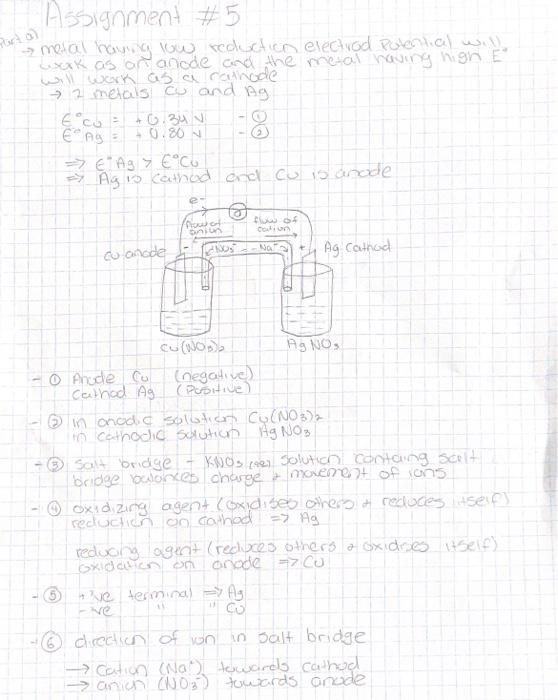 Assignment #5
Part a)
→ metal having low reduction electrod Potential will
work as an anode and the metal having high E°
will work as a cathode
→ 2 metals Cu and Ag
E°Cu = +0.34 V - ①
E°Ag = +0.80 V - ②
⇒ E°Ag > E°Cu
⇒ Ag is cathod and Cu is anode
e-
flow of anion
flow of cation
- NO3- -- Na+ +
Cu anode
Ag Cathod
Cu(NO3)2
AgNO3
- ① Anode Cu (negative)
Cathod Ag (Positive)
- ② in anodic solution Cu(NO3)2
in cathodic solution AgNO3
- ③ Salt bridge - KNO3 (aq) solution containg salt
bridge balances charge & movement of ions
- ④ oxidizing agent (oxidises others & reduces itself)
reduction on cathod => Ag
reducing agent (reduces others & oxidises itself)
oxidation on anode => Cu
- ⑤ +'ve terminal => Ag
-ve " " Cu
- ⑥ direction of ion in salt bridge
→ Cation (Na+) towards cathod
→ anion (NO3-) towards anode